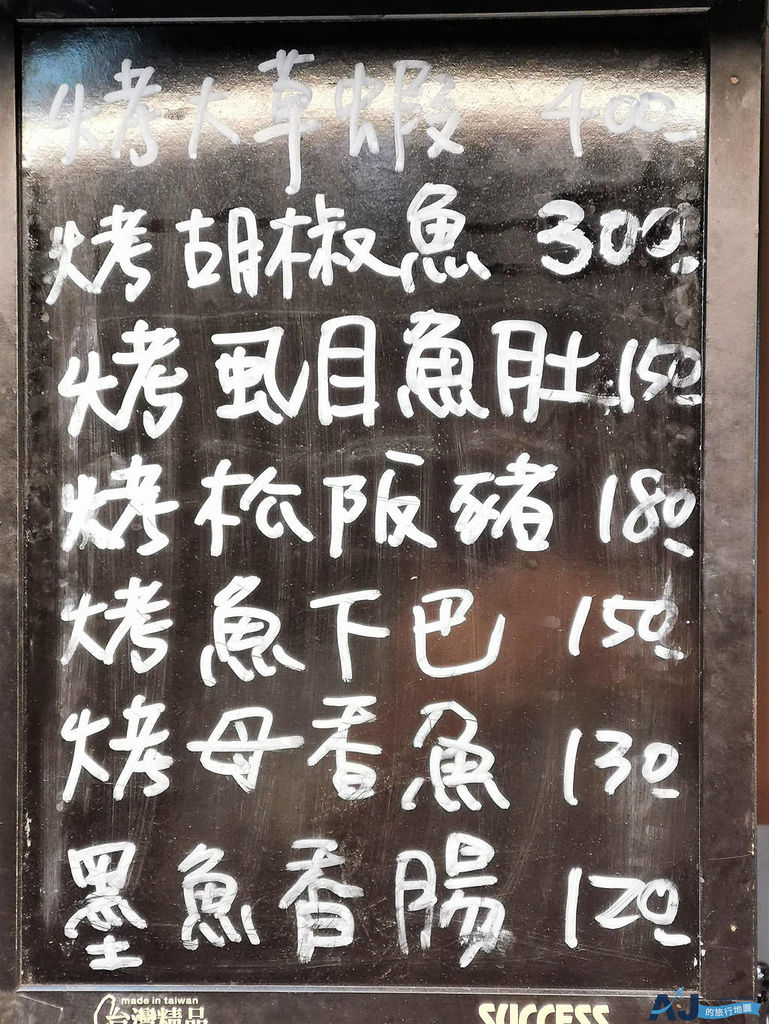 烤大草蝦 400
烤胡椒魚 300
烤虱目魚肚 150
烤松阪豬 180
烤魚下巴 150
烤母香魚 130
墨魚香腸 120
made in taiwan
台灣精品
SUCCESS
AJ的旅行地圖